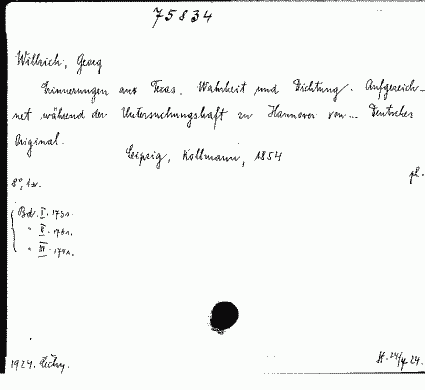 75834
Willrich, Georg
Erinnerungen aus Texas. Wahrheit und Dichtung. Aufgezeich-
net während der Untersuchungshaft zu Hannover von... Deutsches
Original.
Leipzig, Kollmann, 1854
pl.
8°, 1 sv.
Bd. I. 173 s.
" II. 176 s.
" III. 174 s.
1924.
H. 24/IV 24.